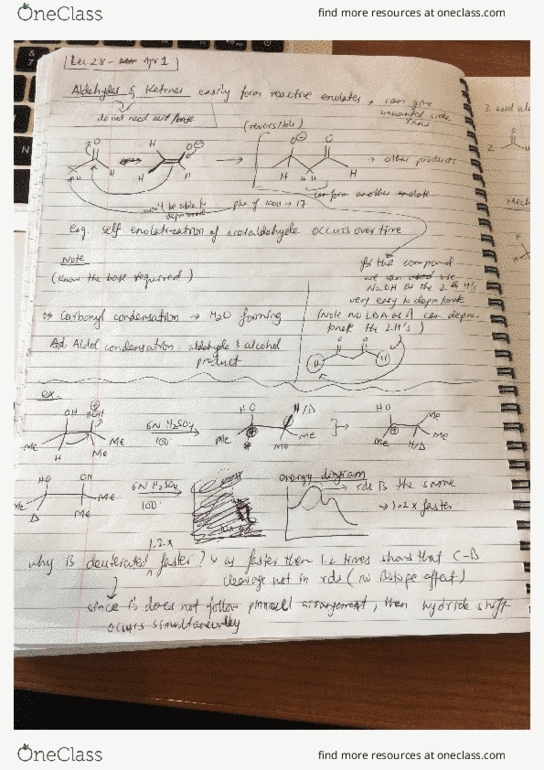 OneClass
find more resources at oneclass.com
Lec 28 - Apr 1
Aldehydes & Ketones easily form reactive enolates, can give
unwanted side
do not need acid/base
(reversible)
O
H
H
O
H
O
O
H
H H
H
+ other products
can form another enolate
won't be able to
deprotonate
e.g. self enolatization of acetaldehyde occurs over time
Note
(know the base required)
for this compound
we can use
NaOH as the 2 H's
very easy to deprotonate
(Note no LDA as it can depro-
tonate the 2 H's)
Carbonyl condensation → H2O forming
Aldol condensation: aldehyde & alcohol
product
O
O
H
H
ex.
OH
Me
H
Me
Me
6N H2SO4
100°
HO
H/D
Me
Me
Me
HO
Me
Me
H/D
Me
HO
OH
Me
D
Me
Me
6N H2SO4
100°
energy diagram
rds is the same
→ 1.2x faster
1.2x
why is deuterated faster? as faster then 1.2 times shows that C-D
cleavage not in rds (no isotope effect)
since it does not follow pinnacol arrangement, then hydride shift
occurs simultaneously
3. acid
2.
O
Mech
OneClass
find more resources at oneclass.com